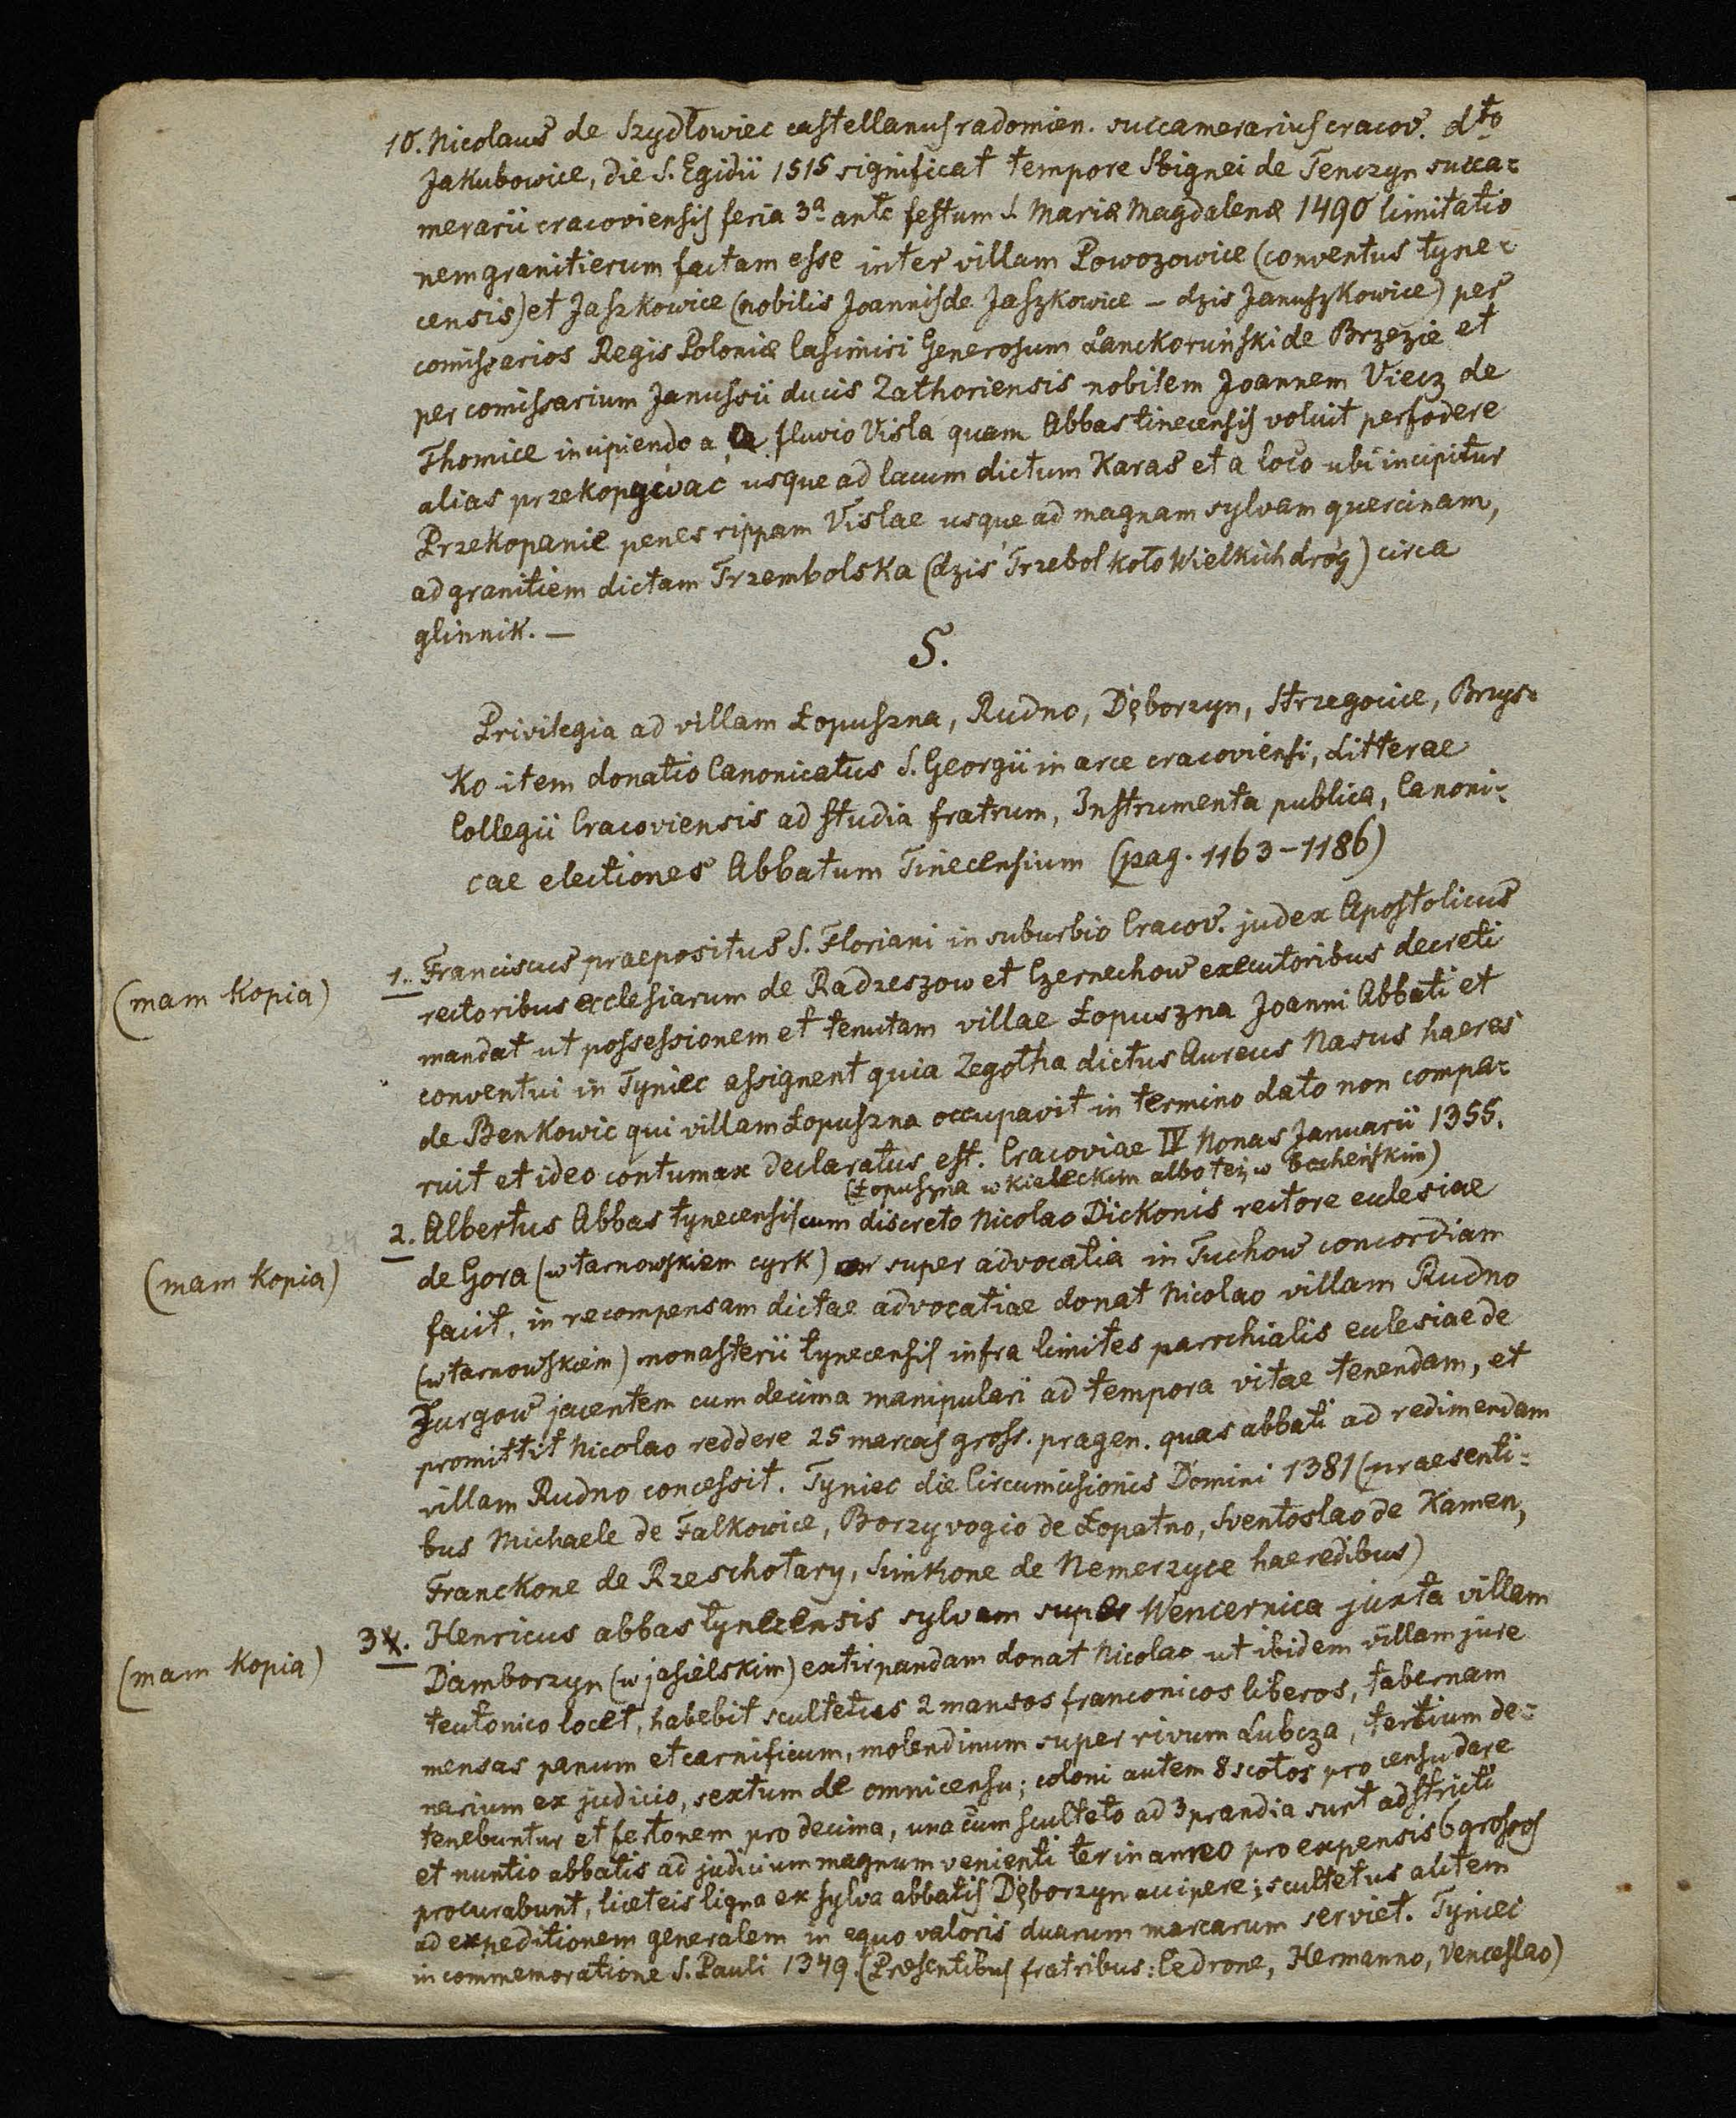 10. Nicolaus de Szydłowiec castellanus radomien. succamerarius cracov. dto
Jakubowice, die S. Egidii 1515 significat tempore Sbignei de Tenczyn succa=
merarii cracoviensis feria 3a ante festum S. Mariæ Magdalenæ 1490 limitatio
nem granitierum factam esse inter villam Powozowice (conventus tyne=
censis) et Jaszkowice (nobilis Joannis de Jaszkowice – dzis Januszkowice) per
comissarios Regis Poloniæ Casimiri Generosum Lanckoruński de Brzezie et
per comissarium Janussii ducis Zathoriensis nobilem Joannem Viecz de
Thomice incipiendo a fluvio Visla quam Abbas tinecensis voluit perfodere
alias przekopywać usque ad lacum dictum Karas et a loco ubi incipitur
Przekopanie penes rippam Vislae usque ad magnam sylvam quercinam,
ad granitiem dictam Trzembolska (dzis Trzebol koło Wielkich dróg) circa
glinnik. —
S.
Privilegia ad villam Łopuszna, Rudno, Dęborzyn, Strzegocice, Brys=
ko item donatio Canonicatus S. Georgii in arce cracoviensi, litterae
Collegii Cracoviensis ad studia fratrum, Instrumenta publica, Canoni=
cae electiones Abbatum Tinecensium (pag. 1163–1186)
(mam kopia)
1. Franciscus praepositus S. Floriani in suburbio Cracov. judex Apostolicus
rectoribus ecclesiarum de Radzeszow et Czernechow executoribus decreti
mandat ut possessionem et tenutam villae Łopuszna Joanni Abbati et
conventui in Tyniec assignent quia Zegotha dictus Aureus Nasus haeres
de Benkowic qui villam Łopuszna occupavit in termino dato non compa=
ruit et ideo contumax declaratus est. Cracoviae IV Nonas Januarii 1355.
(Łopuszna w Kieleckim albo też w Bocheńskim)
(mam kopia)
2. Albertus Abbas tynecensis cum discreto Nicolao Dickonis rectore eclesiae
de Gora (w tarnowskiem cyrk) super advocatia in Tuchow concordiam
facit, in recompensam dictae advocatiae donat Nicolao villam Rudno
(w tarnowskiem) monasterii tynecensis infra limites parrchialis eclesiae de
Jurgow jacentem cum decima manipulari ad tempora vitae tenendam, et
promittit Nicolao reddere 25 marcas gross. pragen. quas abbati ad redimendam
villam Rudno concessit. Tyniec die Circumcisionis Domini 1381 (praesenti=
bus Michaele de Falkowice, Borzyvogio de Łopatno, Sventoslao de Kamen,
Franckone de Rzeschotary, Sinkone de Nemerzyce haeredibus)
(mam kopia)
3. Henricus abbas tynecensis sylvam super Wencernica juxta villam
Damborzyn (w jasielskim) extirpandam donat Nicolao ut ibidem villam jure
teutonico locet, habebit scultetus 2 mansos franconicos liberos, tabernam
mensas panum et carnificum, molendinum super rivum Lubcza, tertium de=
narium ex judicio, sextum de omni censu; coloni autem 8 scotos pro censu dare
tenebuntur et fertonem pro decima, una cum sculteto ad 3 prandia sunt adstricti
et nuntio abbatis ad judicium magnum venienti ter in anno pro expensis 6 grossos
procurabunt, licet eis ligna ex sylva abbatis Dęborzyn accipere; scultetus autem
ad expeditionem generalem in equo valoris duarum marcarum serviet. Tyniec
in commemoratione S. Pauli 1349. (Presentibus fratribus: Cedrone, Hermanno, Venceslao)